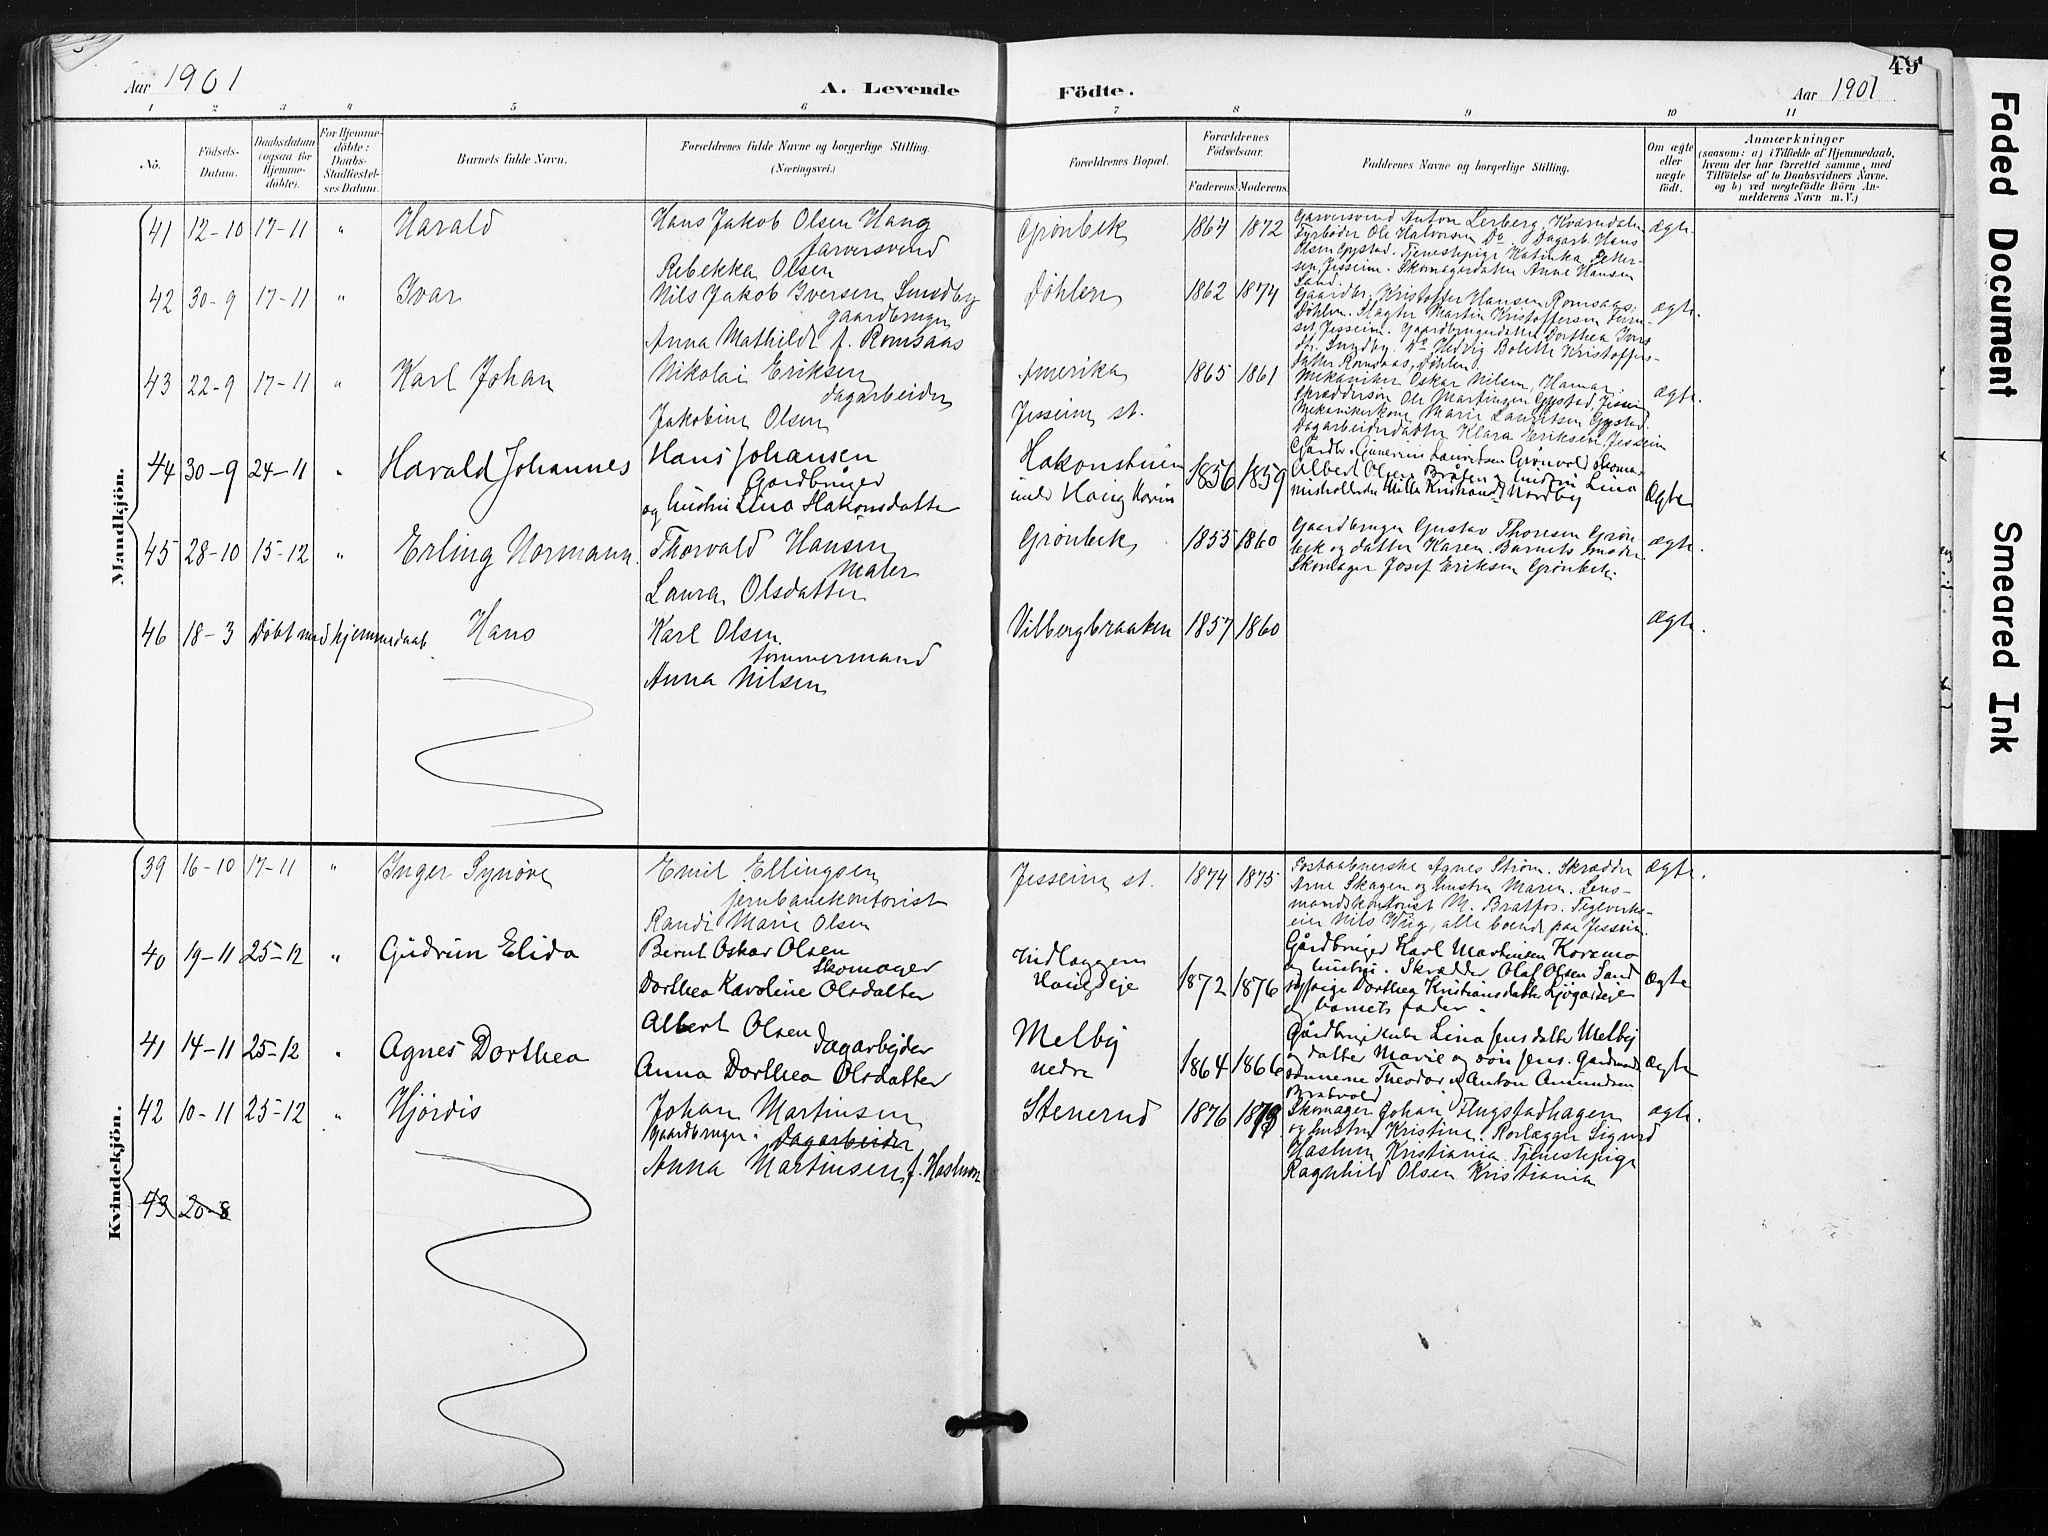 Aar 1901
A. Levende
Födte.
Aar 1901
49
1 2 3 4 5 6 7 8 9 10 11
No.
Födsels-
Datum.
Daabsdatum
(ogsaa for
Hjemme-
döbte).
For Hjemme-
döbte:
Daabs-
Stadfæstel-
ses Datum.
Barnets fulde Navn.
Forældrenes fulde Navne og borgerlige Stilling.
(Næringsvei.)
Forældrenes Bopæl.
Forældrenes
Födselsaar.
Faderens. Moderens.
Faddernes Navne og borgerlige Stilling.
Om ægte
eller
uægte
födt.
Anmærkninger
(saasom: a) i Tilfælde af Hjemmedaab,
hvem der har forrettet samme, med
Tilföielse af to Daabsvidners Navne,
og b) ved uægtefödte Börn An-
melderens Navn m. V.)
Mandkjön.
41 12-10 17-11 " Harald
Hans Jakob Olsen Haug
farversvend
Rebekka Olsen
Grønbek 1864 1872
Garversvend Anton Lerberg, Kværndalen
Fyrbøder Ole Halvorsen Do. Dagarb. Hans
Olsen Gystad. Tjenestepige Katinka Petter-
sen, Jesseim. Skomagerdatter Anne Hansen
Sand.
Ægte.
42 30-9 17-11 " Ivar
Nils Jakob Iversen Sundby
gaardbruger
Anna Mathilde f. Romsaas
Døhlen 1862 1874
Gaardbr. Kristoffer Hansen Romsaas,
Døhlen. Slagter Martin Kristoffersen
Jesseim. Gaardbrugerdatter Dorthea Ivers
dt. Sundby. Do Hedvig Bolette Kristoffers-
datter Romsaas, Døhlen.
Ægte.
43 22-9 17-11 " Karl Johan
Nikolai Eriksen
dagarbeider
Jakobine Olsen
Amerika
Jesseim st.
1865 1861
Mekaniker Oskar Nilsen, Hamar.
Skræddersøn Ole Martinsen Gystad, Jesseim
Mekanikerkone Marie Lauritsen Gystad.
Dagarbeiderdatter Klara Eriksen Jesseim
Ægte.
44 30-9 24-11 " Harald Johannes
Hans Johansen
Gårdbruger
og hustru Lina Hakonsdatter
Hakonstuen
1856 1859
Gårdbr. Gunerius Lauritsen Grønvold
Albert Olsen Bråten & hustru Lina
Nordby
Ægte
45 28-10 15-12 " Erling Normann.
Thorvald Hansen
Maler
Laura Olsdatter
Grønbek 1855 1860
Gaardbruger Gustav Thoresen Grøn-
bek og datter Karen. Barnets moder
Skomager Josef Eriksen Grønbek.
Ægte.
46 18-3 Døbt med hjemmedaab. Hans
Karl Olsen
tømmermand
Anna Nilsen
Vilbergbraaten 1857 1860
Ægte.
Kvindekjön.
39 16-10 17-11 " Inger Synøve
Emil Ellingsen
jernbanekontorist
Randi Marie Olsen
Jesseim st. 1874 1875
Postaabnerske Agnes Strøm. Skrædder
Arne Skagen og hustru Maren. Lens-
mandskontorist M. Bratfos. Teglverks-
eier Nils Wiig, alle boende paa Jesseim.
Ægte.
40 19-11 25-12 " Gudrun Elida
Bernt Oskar Olsen
Skomager
Dorthea Karoline Olsdatter
1872 1876
Gårdbruger Karl Martinsen Koremo
og hustru. Skrædder Olaf Olsen Sand
sypige Dorthea Kristiansdatter
& barnets fader.
Ægte
41 14-11 25-12 " Agnes Dorthea
Albert Olsen
Dagarbejder
Anna Dorthea Olsdatter
Melby
nedre
1864 1866
Gårdbrugerenke Lina Jensdatter Melby
og datter Marie og søn Jens. Gardmands
sønnerne Theodor & Anton Amundsen
Brotvold
Ægte
42 10-11 25-12 " Hjørdis
Johan Martinsen
Gaardbruger. Dagarbeider
Anna Martinsen f. Haslum
Stenerud 1876 1873
Skomager Johan Flugstadhagen
og hustru Kristine. Rørlægger Sigurd
Haslum Kristiania. Tjenestepige
Ragnhild Olsen Kristiania
Ægte.
43 20-8
Faded Document
Smeared Ink